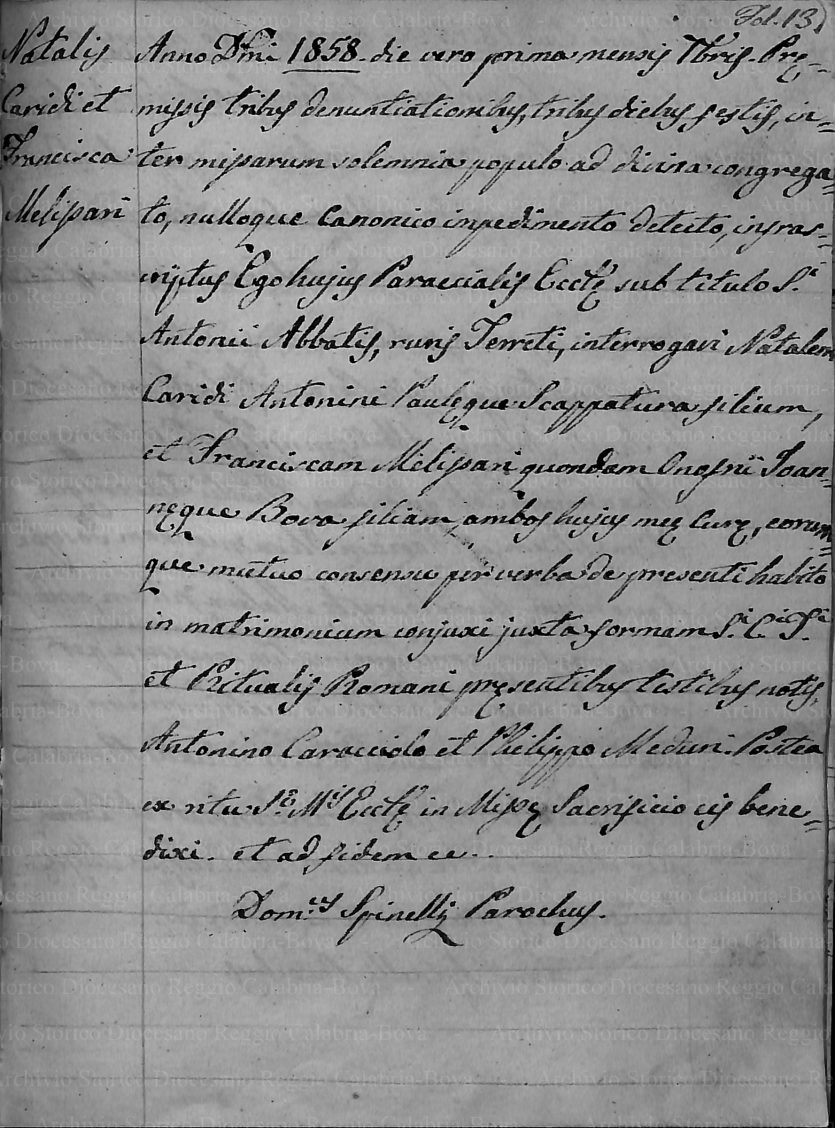 Fol. 13
Natalis
Caridi et
Francisca
Melissari
Anno Dñi 1858. die vero prima mensis 7bris. Prę=
missis tribus denuntiationibus, tribus diebus festis, in=
ter missarum solemnia populo ad divina congrega=
to, nulloque Canonico inpedimento detecto, infras=
criptus Ego hujus Paraecialis Ecclę sub titulo S.i
Antonii Abbatis, ruris Terreti, interrogavi Natalem
Caridi Antonini Paulęque Scappatura filium,
et Franciscam Melissari quondam Onofrii Joan=
nęque Bova filiam, ambos hujus meę Curę, eorum=
que mutuo consensu per verba de presenti habito
in matrimonium conjuxi juxta formam S.i C.i T.i
et Ritualis Romani pręsentibus testibus notis,
Antonino Caracciolo et Philippo Meduri. Postea
ex ritu S.ę M.is Ecclę in Missę Sacrificio eis bene=
dixi. et ad fidem ec..
Dom.cus Spinelli Parochus.
Archivio Storico Diocesano Reggio Calabria-Bova